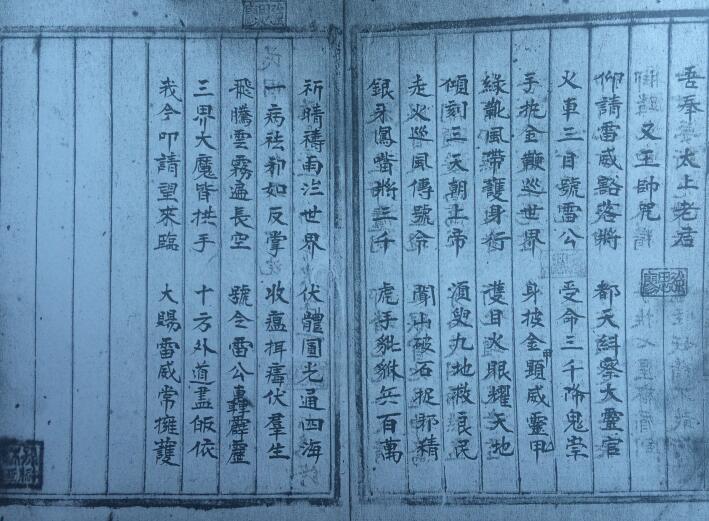 吾奉太上老君
又王帥咒
仰請雷威豁落將 都天糾察大靈官
火車三目號雷公 受命三千降鬼祟
手执金鞭巡世界 身披金甲顯威靈
綠靴風帶護身衛 護目火眼耀天地
傾刻三天朝上帝 須臾九地救良民
走火巡風傳號命 開山破石捉邪精
銀牙鳳嘴將三千 虎手貔貅兵百萬
祈晴禱雨世界 伏體圓光通四海
一病祛邪如反掌 收瘟伏羣生
飛騰雲霧遍長空 號令雷公轟霹靂
三界大魔皆拱手 十方外道盡皈依
我今叩請望來臨 大賜雷威常擁護